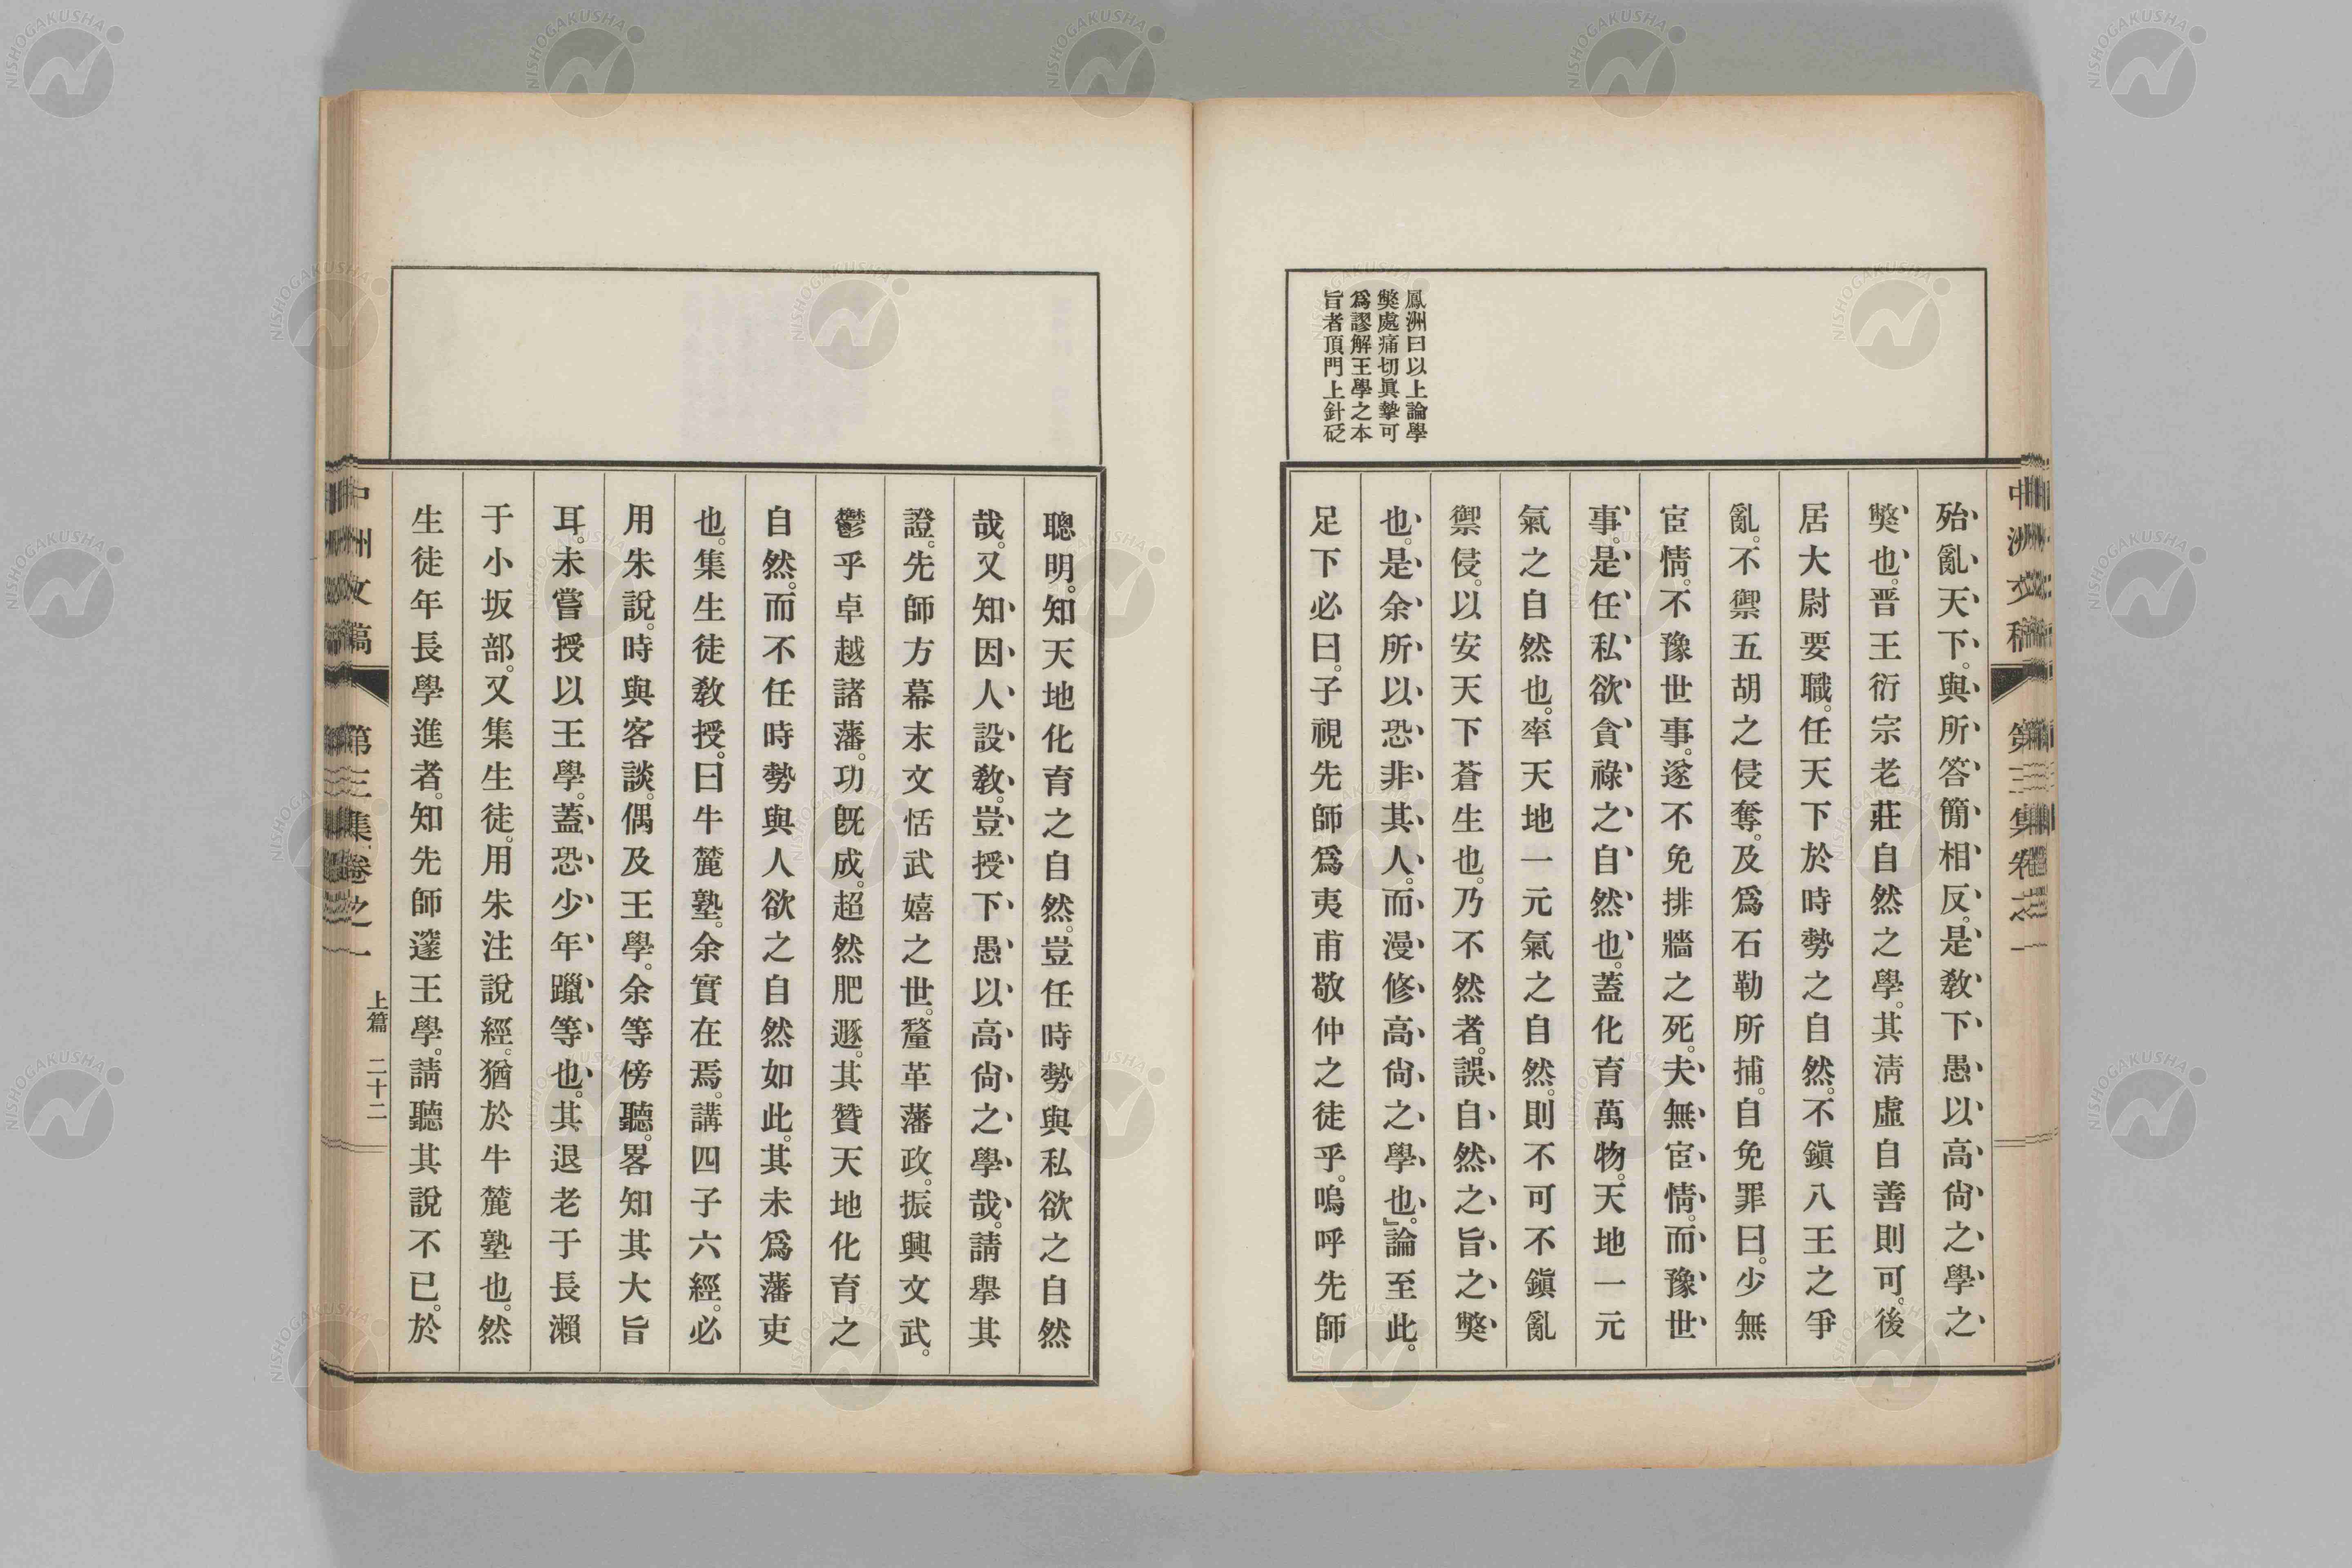 鳳洲曰以上論學
獘處痛切眞摯可
爲謬解王學之本
旨者頂門上針砭
殆亂天下。與所答簡相反。是敎下愚以高尙之學之
獘也。晋王衍宗老莊自然之學。其淸虛自善則可。後
居大尉要職。任天下於時勢之自然。不鎭八王之爭
亂。不禦五胡之侵奪。及爲石勒所捕。自免罪曰。少無
宦情。不豫世事。遂不免排牆之死。夫無宦情。而豫世
事。是任私欲貪祿之自然也。蓋化育萬物。天地一元
氣之自然也。率天地一元氣之自然。則不可不鎭亂
禦侵。以安天下蒼生也。乃不然者。誤自然之旨之獘
也。是余所以恐非其人。而漫修高尙之學也。』論至此。
足下必曰。子視先師爲夷甫敬仲之徒乎。嗚呼先師
中洲文稿 第三集卷之一
聰明。知天地化育之自然。豈任時勢與私欲之自然
哉。又知因人設敎。豈授下愚以高尙之學哉。請擧其
證。先師方幕末文恬武嬉之世。釐革藩政。振興文武。
鬱乎卓越諸藩。功旣成。超然肥遯。其贊天地化育之
自然。而不任時勢與人欲之自然如此。其未爲藩吏
也。集生徒敎授。曰牛麓塾。余實在焉。講四子六經。必
用朱說。時與客談。偶及王學。余等傍聽。畧知其大旨
耳。未嘗授以王學。蓋恐少年躐等也。其退老于長瀨
于小坂部。又集生徒。用朱注說經。猶於牛麓塾也。然
生徒年長學進者。知先師邃王學。請聽其說不已。於
中洲文稿 第三集卷之一 上篇 二十二